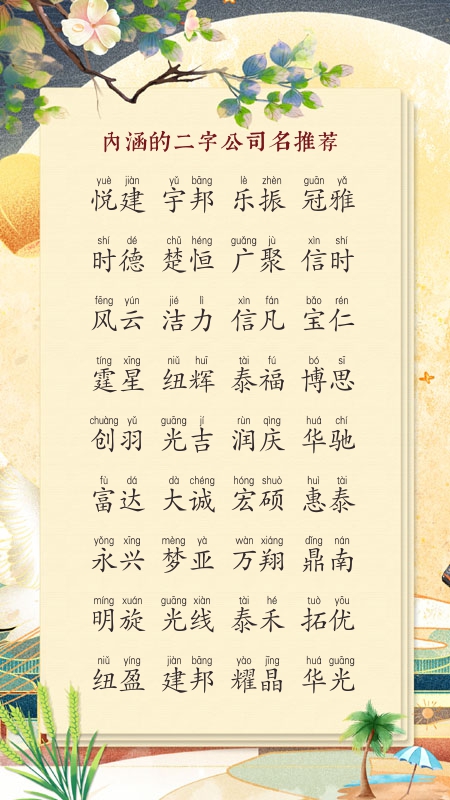 内涵的二字公司名推荐
yuè jiàn yǔ bāng lè zhèn guān yǎ
悦建 宇邦 乐振 冠雅
shí dé chǔ héng guǎng jù xìn shí
时德 楚恒 广聚 信时
fēng yún jié lì xìn fán bǎo rén
风云 洁力 信凡 宝仁
tíng xīng niǔ huī tài fú bó sī
霆星 纽辉 泰福 博思
chuàng yǔ guāng jí rùn qìng huá chí
创羽 光吉 润庆 华驰
fù dá dà chéng hóng shuò huì tài
富达 大诚 宏硕 惠泰
yǒng xīng mèng yà wàn xiáng dǐng nán
永兴 梦亚 万翔 鼎南
míng xuán guāng xiàn tài hé tuò yōu
明旋 光线 泰禾 拓优
niǔ yíng jiàn bāng yào jīng huá guāng
纽盈 建邦 耀晶 华光